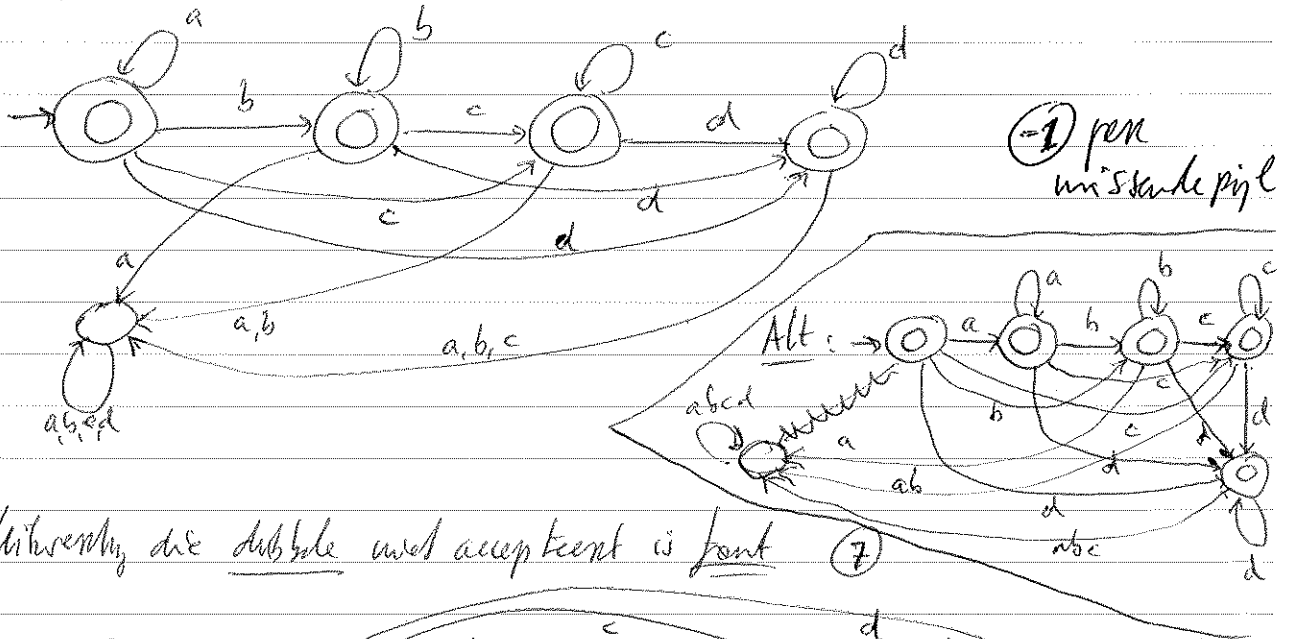 a
b
c
d
b
c
d
c
d
d
(-1) per
missende pijl
a
a,b
a,b,c
a,b,c,d
Alt:
a
b
c
a
b
c
c
b
c
d
d
abcd
a
ab
d
d
abc
d
die dubbele niet accepteert is fout (7)
c
d